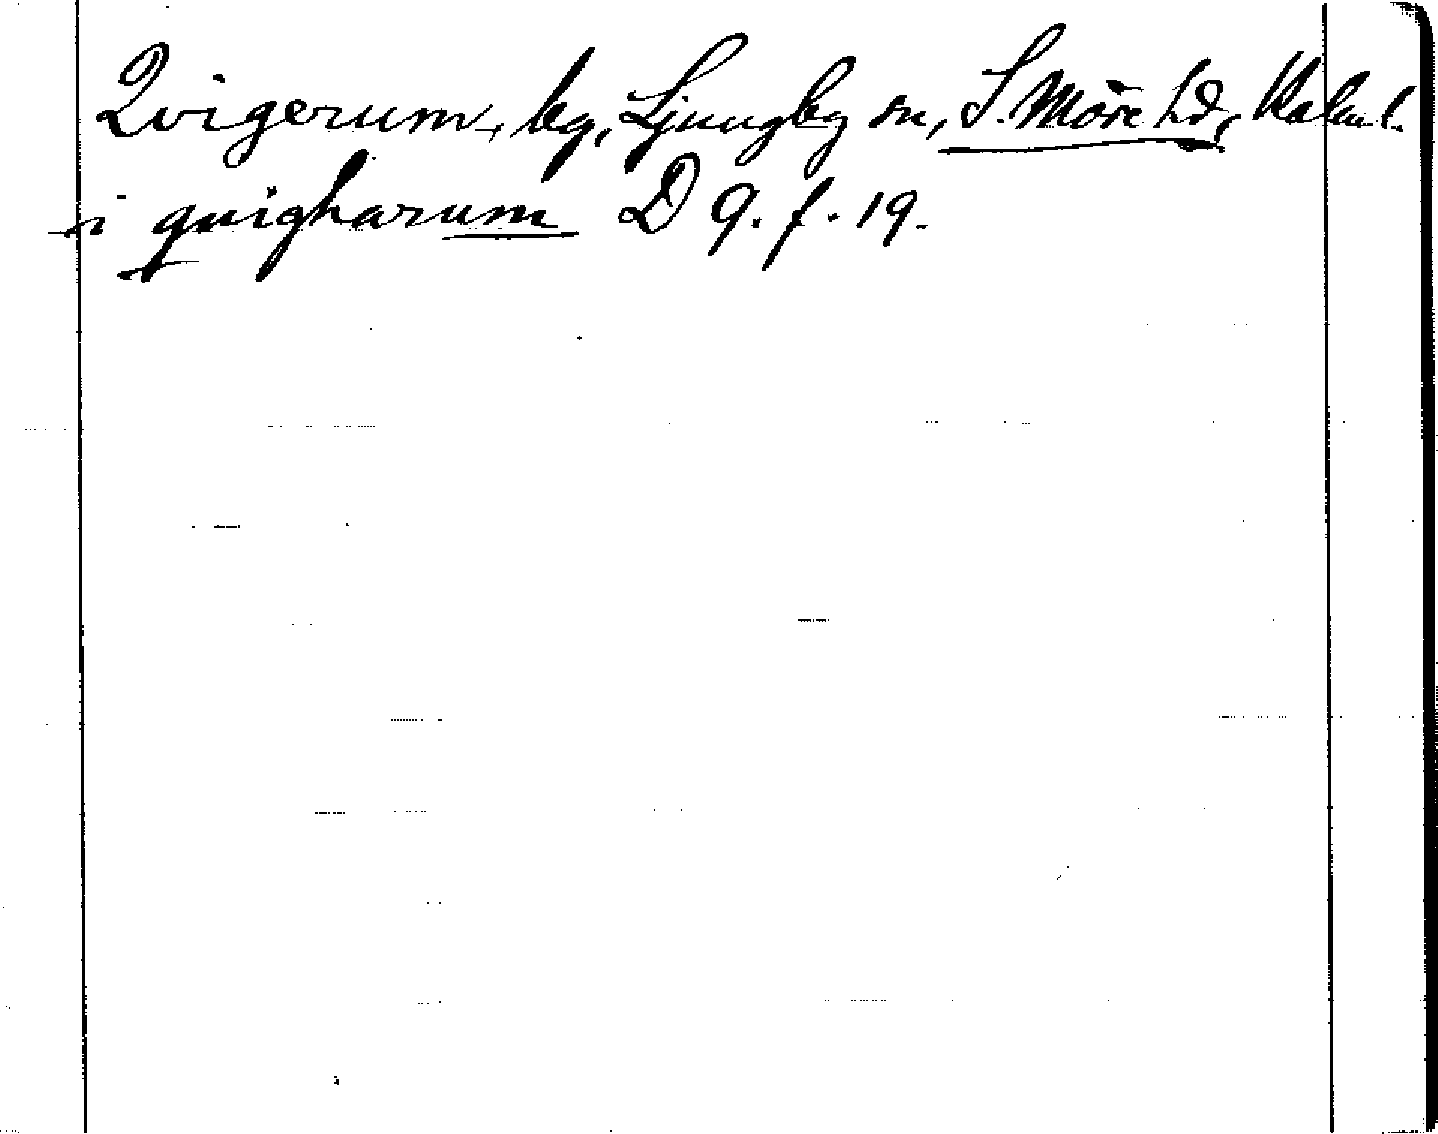 Qvigerum, by, Ljungby sn, S. Möre hd, Kalm. l.
i quigharum D 9. f. 19.